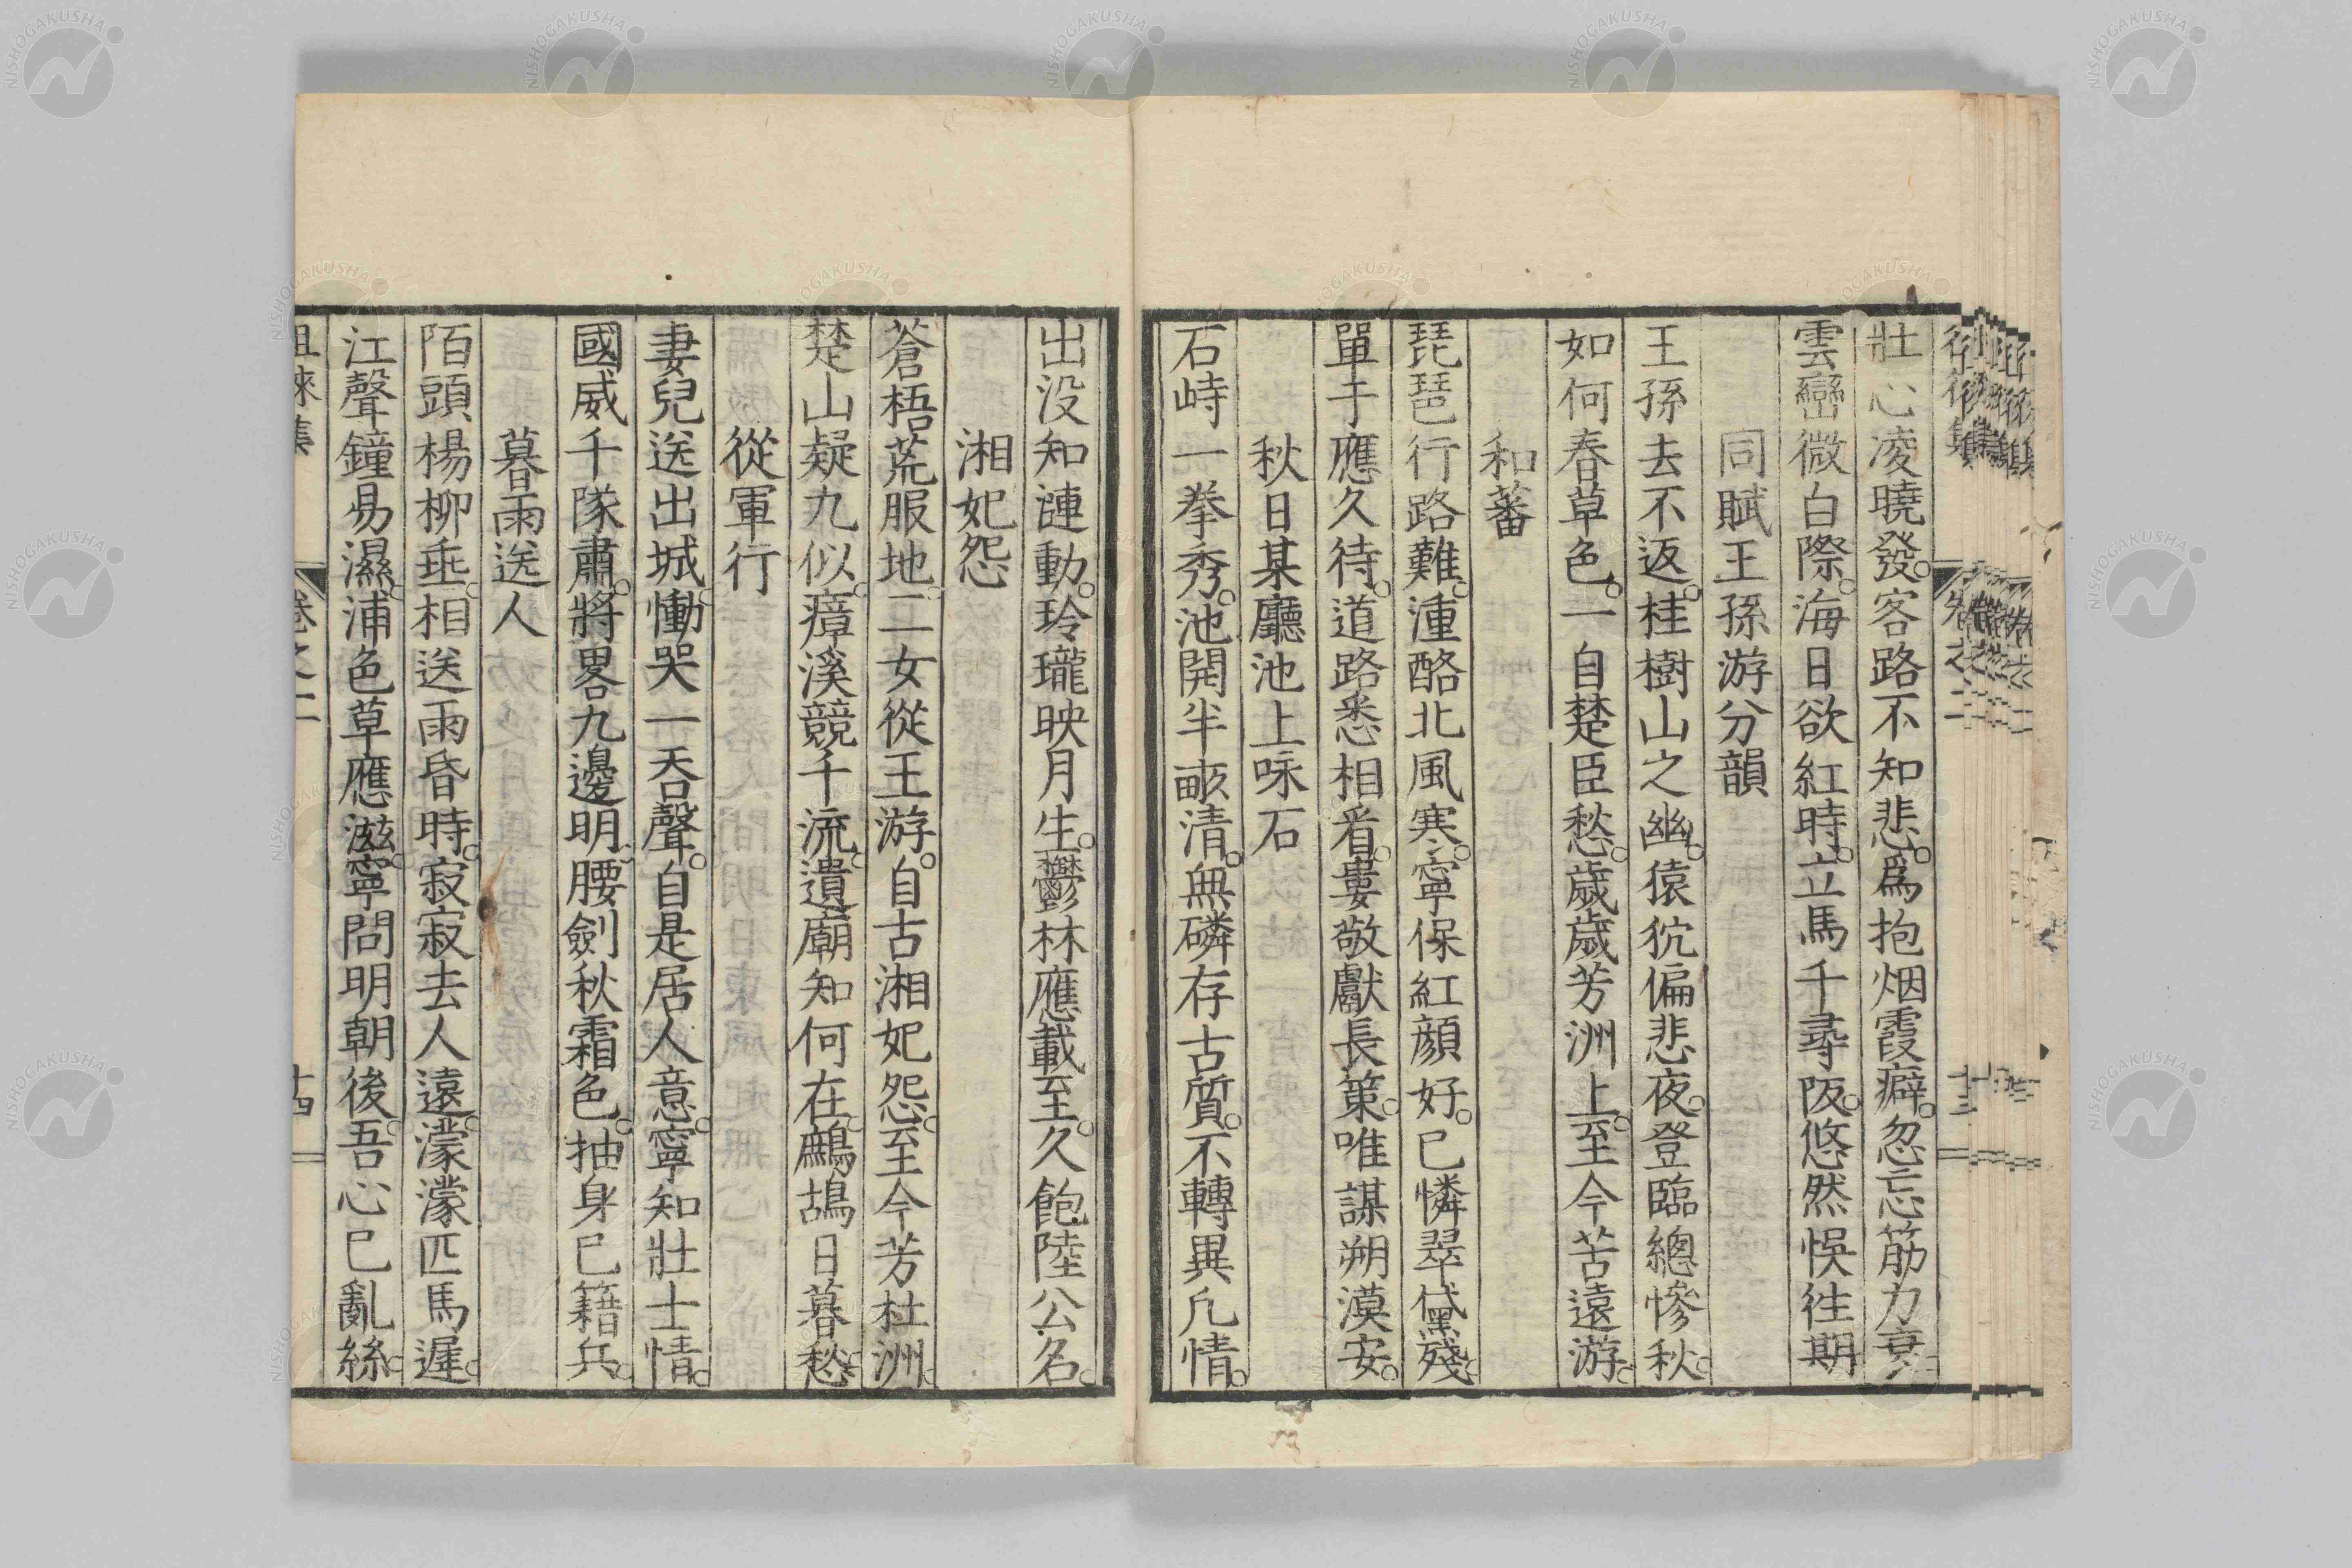 壯心凌曉發。客路不知悲。爲抱烟霞癖。忽忘筋力衰。
雲巒微白際。海日欲紅時。立馬千尋阪。悠然悞往期
同賦王孫游分韻
王孫去不返。桂樹山之幽。猿狖偏悲夜。登臨總慘秋。
如何春草色。一自楚臣愁。歲歲芳洲上。至今苦遠游。
和蕃
琵琶行路難。湩酪北風寒。寧保紅顔好。已憐翠黛殘。
單于應久待。道路悉相看。婁敬獻長策。唯謀朔漠安。
秋日某廳池上咏石
石峙一拳秀。池開半畝清。無磷存古質。不轉異凡情。
出没知漣動。玲瓏映月生。鬱林應載至。久飽陸公名。
湘妃怨
蒼梧荒服地。二女從王游。自古湘妃怨。至今芳杜洲。
楚山疑九似。瘴溪競千流。遺廟知何在。鷓鴣日暮愁。
從軍行
妻兒送出城。慟哭一吞聲。自是居人意。寧知壯士情。
國威千隊肅。將畧九邊明。腰劍秋霜色。抽身已籍兵。
暮雨送人
陌頭楊柳垂。相送雨昏時。寂寂去人遠。濛濛匹馬遲。
江聲鐘易濕。浦色草應滋。寧問明朝後。吾心已亂絲。
徂徠集 卷之二 十四